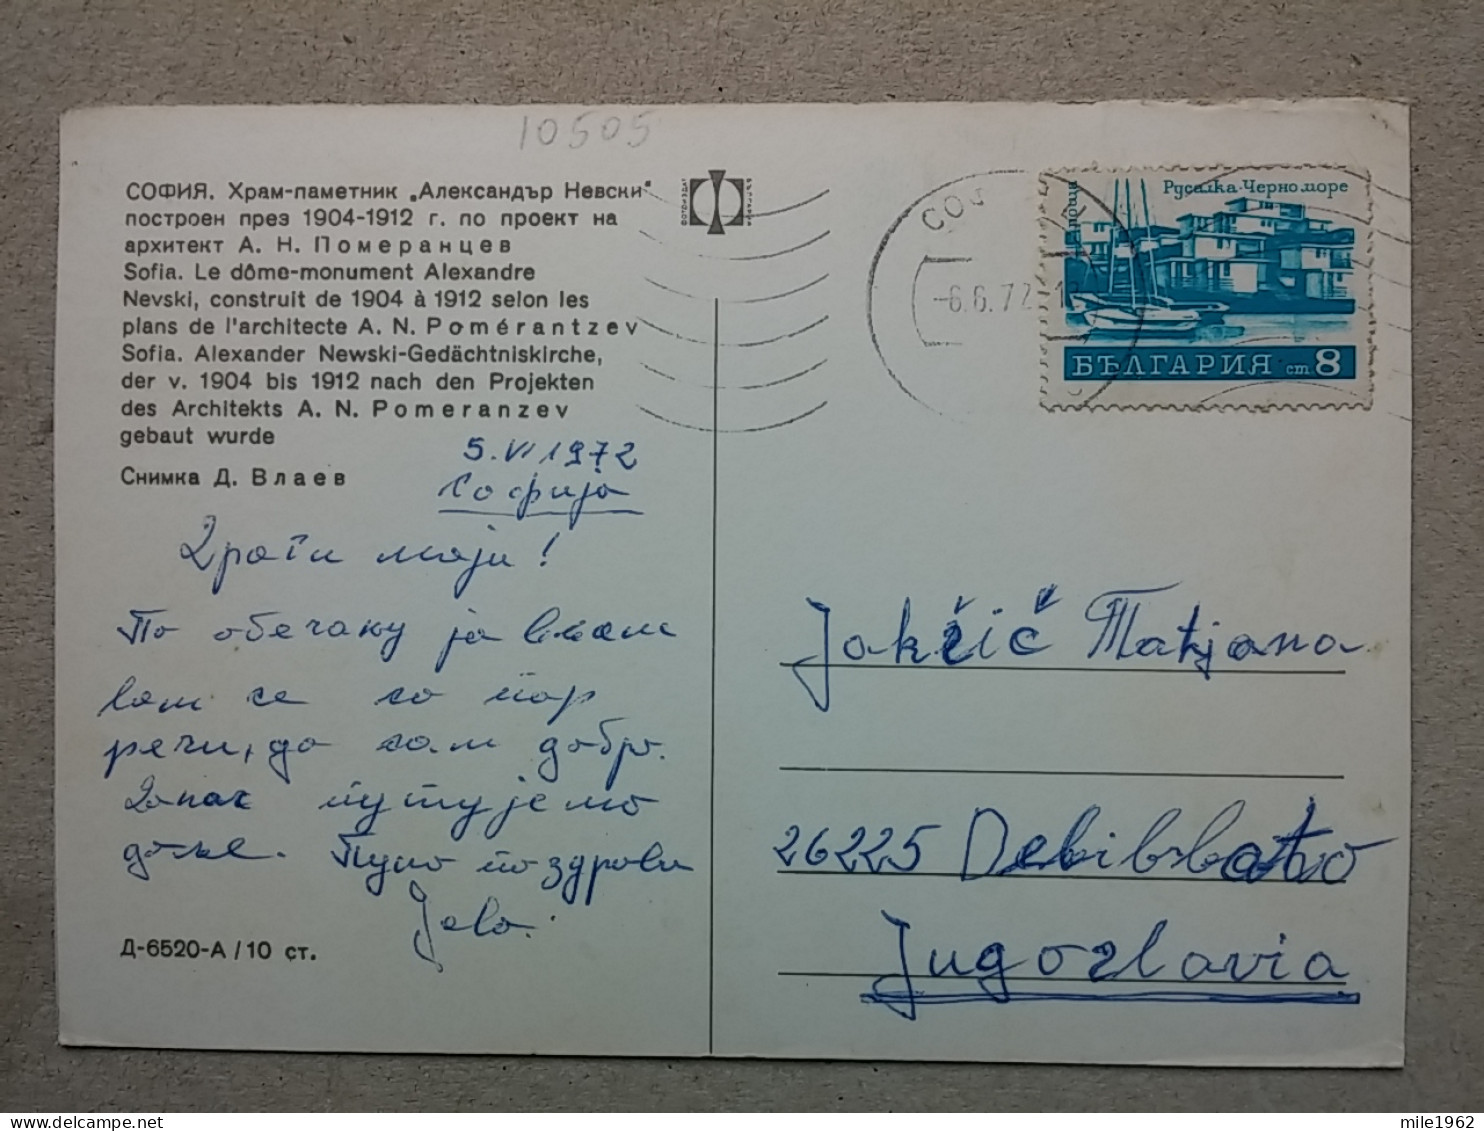 10505
СОФИЯ. Храм-паметник „Александър Невски“
построен през 1904-1912 г. по проект на
архитект А. Н. Померанцев
Sofia. Le dôme-monument Alexandre
Nevski, construit de 1904 à 1912 selon les
plans de l'architecte A. N. Pomérantzev
Sofia. Alexander Newski-Gedächtniskirche,
der v. 1904 bis 1912 nach den Projekten
des Architekts A. N. Pomeranzev
gebaut wurde
Снимка Д. Влаев
5. VI 1972
Софија
Драги моји!
По обећању ја
вам се са пар
речи, да сам добро.
Данас путујемо
даље. Пуно поздрава
Д-6520-А / 10 ст.
поща
Русалка-Черно море
БЪЛГАРИЯ ст 8
СОФ
-6.6.72
Jakšić Tatjana
26225 Debibrbatvo
Jugoslavia
mile1962